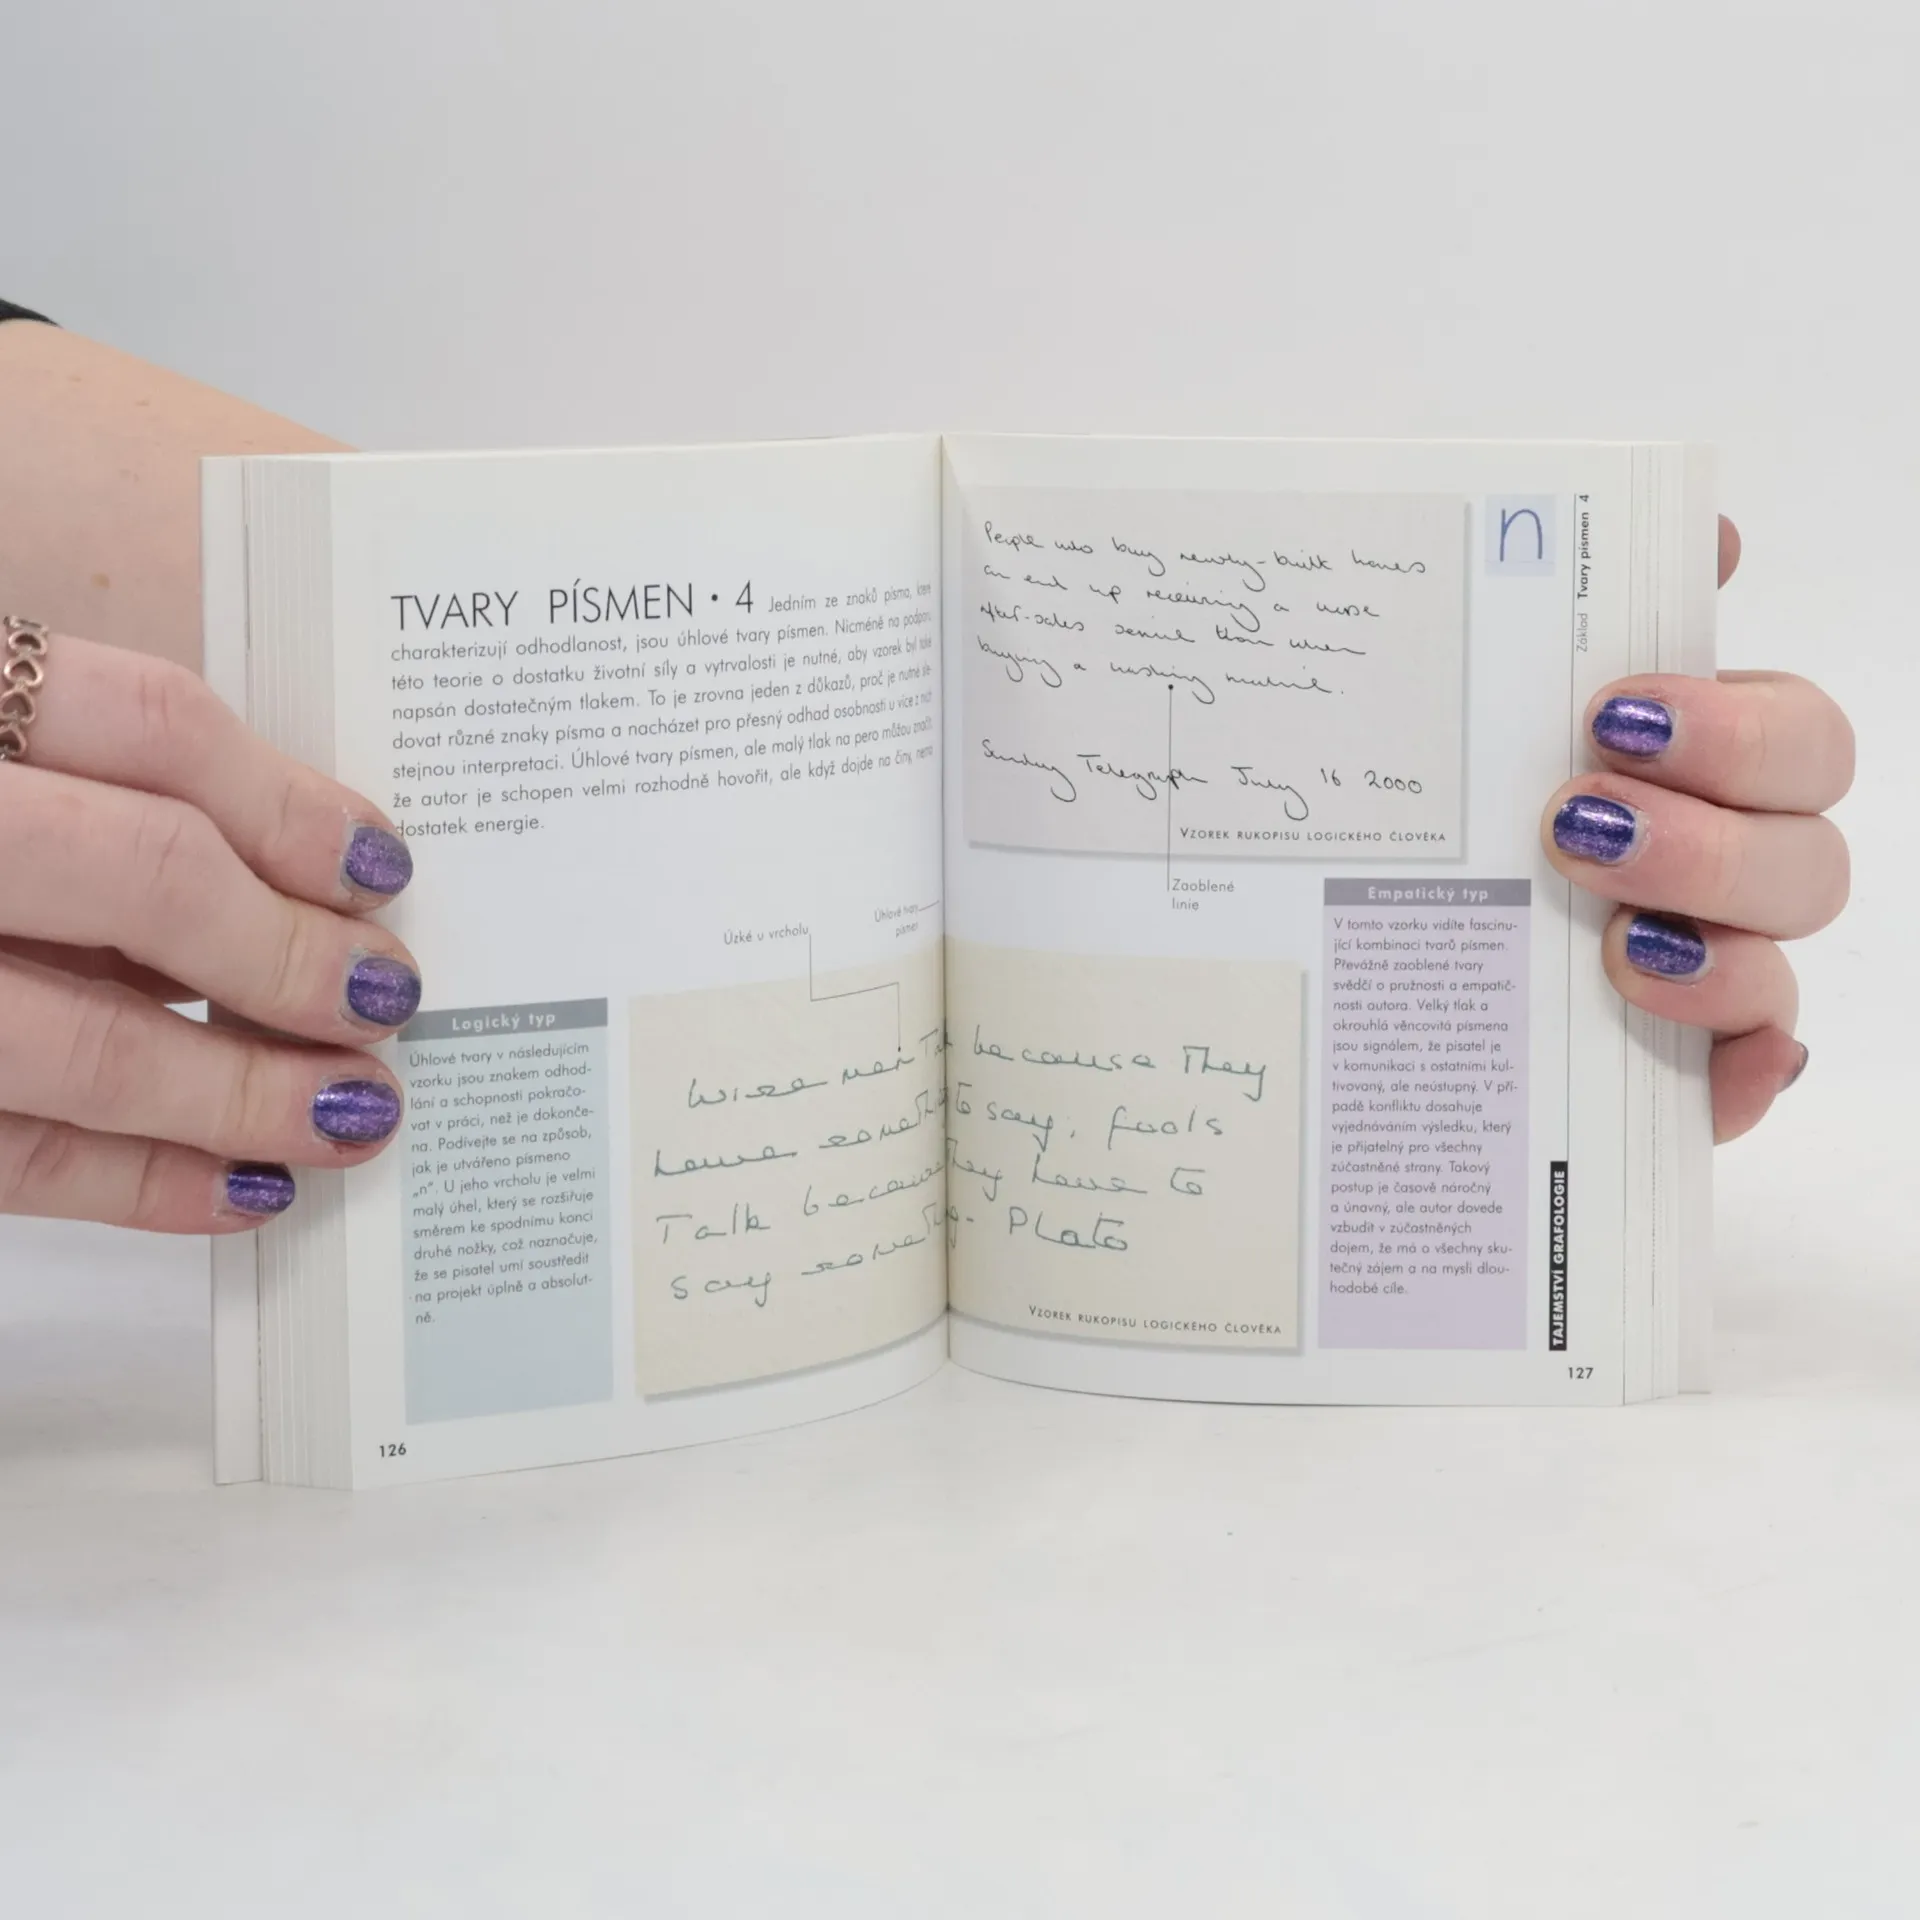 TVARY PÍSMEN • 4 Jedním ze znaků písma, které
charakterizují odhodlanost, jsou úhlové tvary písmen. Nicméně na podporu
této teorie o dostatku životní síly a vytrvalosti je nutné, aby vzorek byl také
napsán dostatečným tlakem. To je zrovna jeden z důkazů, proč je nutné sle-
dovat různé znaky písma a nacházet pro přesný odhad osobnosti u více z nich
stejnou interpretaci. Úhlové tvary písmen, ale malý tlak na pero můžou značit,
že autor je schopen velmi rozhodně hovořit, ale když dojde na činy, nemá
dostatek energie.
Úzké u vrcholu
Úhlové tvary
písmen
Logický typ
Úhlové tvary v následujícím
vzorku jsou znakem odhod-
lání a schopnosti pokračo-
vat v práci, než je dokonče-
na. Podívejte se na způsob,
jak je utvářeno písmeno
„n". U jeho vrcholu je velmi
malý úhel, který se rozšiřuje
směrem ke spodnímu konci
druhé nožky, což naznačuje,
že se pisatel umí soustředit
na projekt úplně a absolut-
ně.
Wise men Talk because They
have something to say; fools
Talk because They have to
say something. Plato
VZOREK RUKOPISU LOGICKÉHO ČLOVĚKA
126
People who buy newly-built homes
can end up receiving a worse
after-sales service than when
buying a washing machine.
Sunday Telegraph July 16 2000
VZOREK RUKOPISU LOGICKÉHO ČLOVĚKA
Zaoblené
linie
n
Základ Tvary písmen 4
Empatický typ
V tomto vzorku vidíte fascinu-
jící kombinaci tvarů písmen.
Převážně zaoblené tvary
svědčí o pružnosti a empatič-
nosti autora. Velký tlak a
okrouhlá věncovitá písmena
jsou signálem, že pisatel je
v komunikaci s ostatními kul-
tivovaný, ale neústupný. V pří-
padě konfliktu dosahuje
vyjednáváním výsledku, který
je přijatelný pro všechny
zúčastněné strany. Takový
postup je časově náročný
a únavný, ale autor dovede
vzbudit v zúčastněných
dojem, že má o všechny sku-
tečný zájem a na mysli dlou-
hodobé cíle.
TAJEMSTVÍ GRAFOLOGIE
127